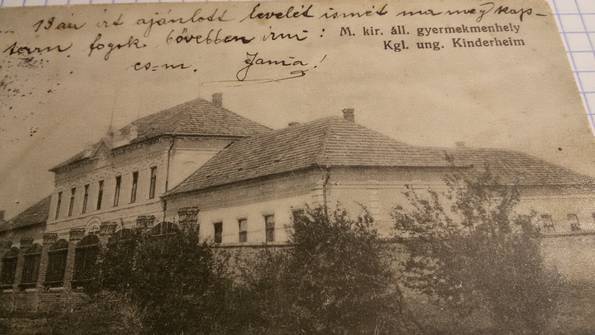 13án írt ajánlott levelét ismét ma megkap-
tam. fogok bővebben írni:
cs-m. Jania!
M. kir. áll. gyermekmenhely
Kgl. ung. Kinderheim